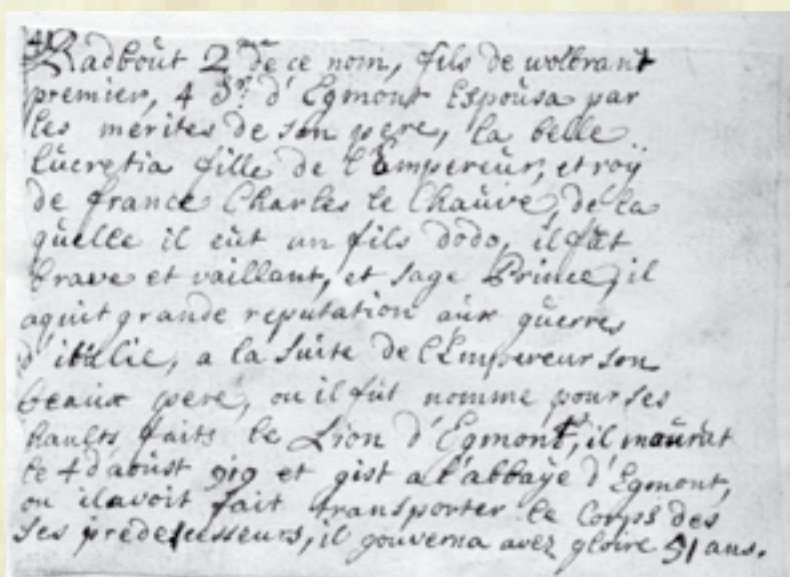 Radboüt 2me de ce nom, fils de wolbrant
premier, 4 Sr. d'Egmont Espoüsa par
les mérites de son pere, la belle
lücretia fille de l'Empereür, et roÿ
de france Charles le Chaüve, de la
qüelle il eüt un fils dodo, il füt
brave et vaillant, et sage Prince, il
aquit grande reputation aüx güerres
d'italie, a la süite de l'Empereur son
beaux peré, ou il füt nomme pour ses
haults faits le Lion d'Egmont, il moürüt
le 4 d'aoüst 919 et gist a l'abbaÿe d'Egmont,
ou il avoit fait transporter le Corps des
ses predecesseurs, il gouverna avez gloire 51 ans.